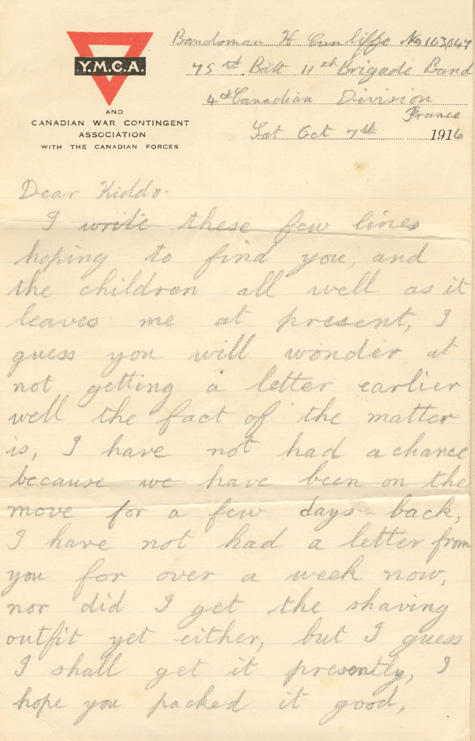 Bandsman H Cunliffe No 163,047
Y.M.C.A.
75st Batt 11th Brigade Band
4th Canadian Division
France
AND
CANADIAN WAR CONTINGENT
ASSOCIATION
WITH THE CANADIAN FORCES
Sat Oct 7th 1916
Dear Kiddo.
I write these few lines
hoping to find you, and
the children all well as it
leaves me at present, I
guess you will wonder at
not getting a letter earlier
well the fact of the matter
is, I have not had a chance
because we have been on the
move for a few days back,
I have not had a letter from
you for over a week now,
nor did I get the shaving
outfit yet either, but I guess
I shall get it presently, I
hope you packed it good,